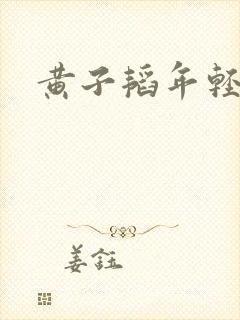 黄子韬年轻
姜钰